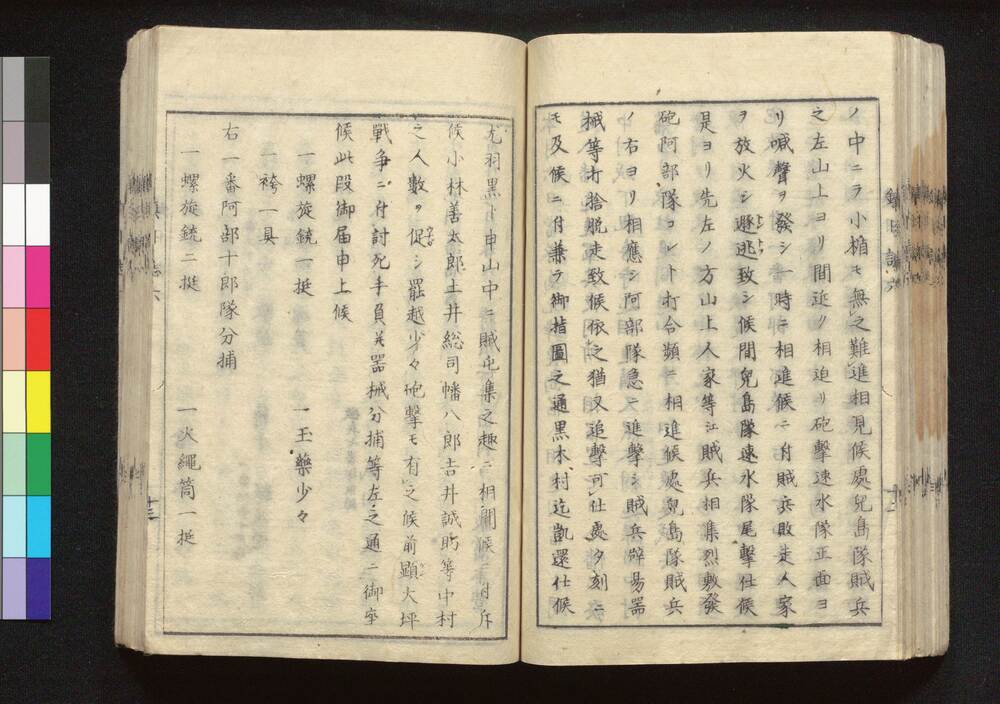 ノ中ニテ小楯モ無之難進相見候處兒島隊賊兵
之左山上ヨリ間近ク相迫リ砲擊速水隊正面ヨ
リ喊聲ヲ發シ一時ニ相進候ニ付賊兵敗走人家
ヲ放火シ遯逃致シ候間兒島隊速水隊尾擊仕候
是ヨリ先左ノ方山上人家等江賊兵相集烈敷發
砲阿部隊コレト打合頻ニ相進候處兒島隊賊兵
ノ右ヨリ相應シ阿部隊急ニ進擊シ賊兵辟易器
械等打捨脱走致候依之猶又追擊可仕處夕刻ニ
モ及候ニ付兼テ御指圖之通黒木村迄凱還仕候
尤羽黒ト申山中ニ賊屯集之趣ニ相聞候ニ付斥
候小林善太郎土井総司幡八郎吉井誠助等中村
之人數ヲ促シ罷越少々砲擊モ有之候前顕大坪
戰争ニ付討死手負并器械分捕等左之通ニ御座
候此段御届申上候
一螺旋銃一挺 一玉藥少々
一袴一具
右一番阿部十郎隊分捕
一螺旋銃二挺 一火繩筒一挺
十三